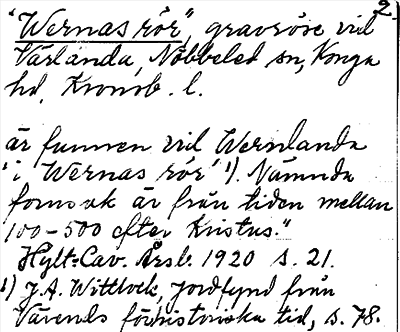 2.
"Wernas rör", gravröse vid
Värlanda, Nöbbeled sn, Konga
hd, Kronob. l.
är funnen vid Wernlanda
"i Wernas rör" ¹). Nämnda
fornsak är från tiden mellan
100-500 efter Kristus."
Hylt-Cav. Årsb. 1920 s. 21.
¹) J.A. Wittlock, Jordfynd från
Värends förhistoriska tid, s. 78.